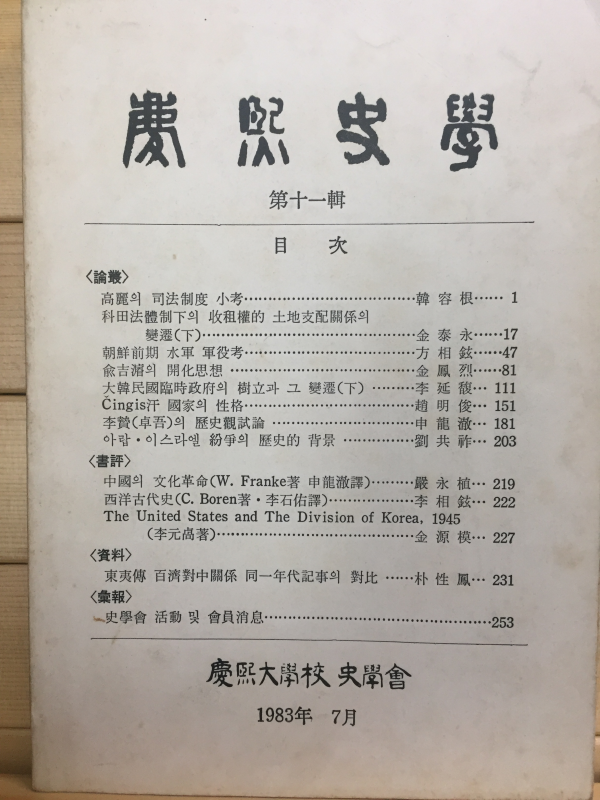 慶熙史學
第十一輯
目 次
〈論叢〉
高麗의 司法制度 小考……………………………………韓容根…… 1
科田法體制下의 收租權的 土地支配關係의
變遷(下)……………………………………金泰永……17
朝鮮前期 水軍 軍役考……………………………………方相鉉……47
兪吉濬의 開化思想 ……………………………………金鳳烈……81
大韓民國臨時政府의 樹立과 그 變遷(下) ………李延馥… 111
Čingis汗 國家의 性格……………………………………趙明俊… 151
李贄(卓吾)의 歷史觀試論………………………………申龍澈… 181
아랍・이스라엘 紛爭의 歷史的 背景 ……………劉共祚… 203
〈書評〉
中國의 文化革命(W. Franke著 申龍澈譯)………嚴永植… 219
西洋古代史(C. Boren著・李石佑譯)……………李相鉉… 222
The United States and The Division of Korea, 1945
(李元卨著)……………………………………金源模… 227
〈資料〉
東夷傳 百濟對中關係 同一年代記事의 對比 ……朴性鳳… 231
〈彙報〉
史學會 活動 및 會員消息……………………………………253
慶熙大學校 史學會
1983年 7月